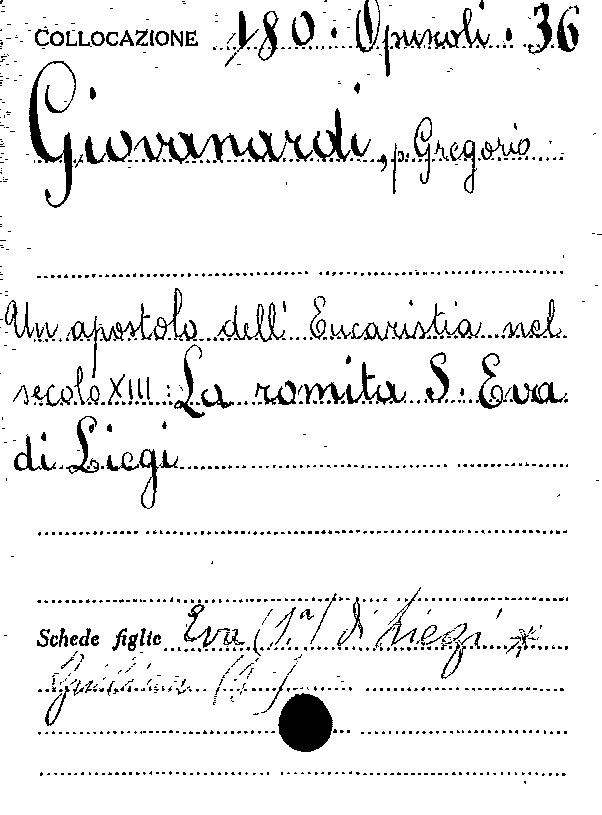 COLLOCAZIONE 180. Opuscoli. 36
Giovanardi, p. Gregorio
Un apostolo dell' Eucaristia nel
secolo XIII: La romita S. Eva
di Liegi
Schede figlie Eva (S.ª) di Liegi *